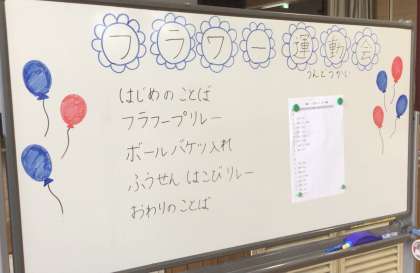 フラワー運動会
うんどうかい
はじめのことば
フラフープリレー
ボールバケツ入れ
ふうせんはこびリレー
おわりのことば